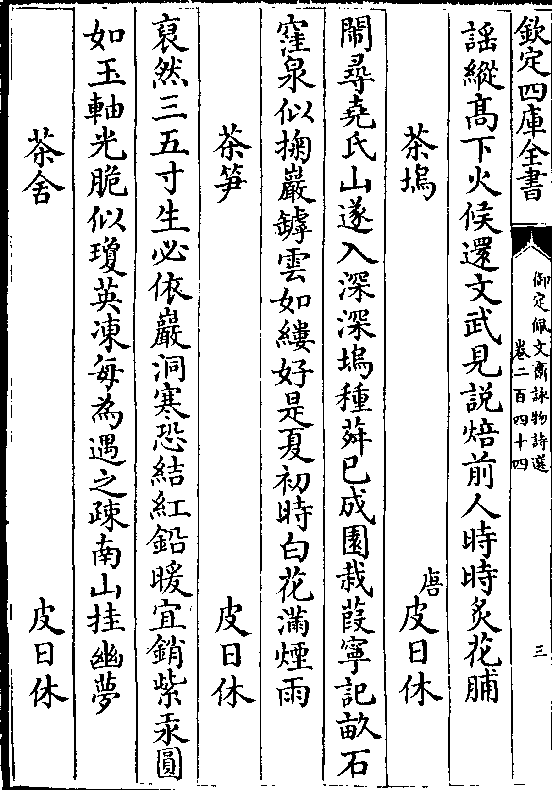 欽定四庫全書
御定佩文齋詠物詩選
卷二百四十四
三
謡縱髙下火候還文武見説焙前人時時炙花脯
茶塢 唐皮日休
閙尋堯氏山遂入深深塢種荈已成園栽葭寧記畝石
窪泉似掬巖罅雲如縷好是夏初時白花滿煙雨
茶笋 皮日休
裒然三五寸生必依巖洞寒恐結紅鉛暖宜銷紫汞圓
如玉軸光脆似瓊英凍每為遇之疎南山挂幽夢
茶舍 皮日休